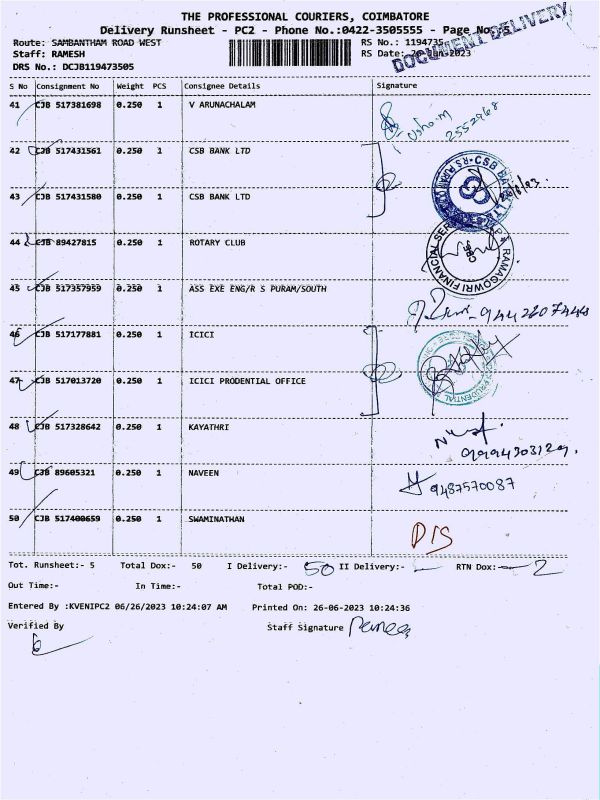 THE PROFESSIONAL COURIERS, COIMBATORE
Delivery Runsheet - PC2 - Phone No.:0422-3505555 - Page No.:5
DOCUMENT DELIVERY
Route: SAMBANTHAM ROAD WEST RS No.: 1194735
Staff: RAMESH RS Date: 26-Jun-2023
DRS No.: DCJB119473505
S No Consignment No Weight PCS Consignee Details Signature
41 CJB 517381698 0.250 1 V ARUNACHALAM
Usha.M
2552968
42 CJB 517431561 0.250 1 CSB BANK LTD
43 CJB 517431580 0.250 1 CSB BANK LTD
CSB BANK LTD
44 CJB 89427815 0.250 1 ROTARY CLUB
RAMAGOWRI FINANCIAL SER
CBE
45 CJB 517357959 0.250 1 ASS EXE ENG/R S PURAM/SOUTH
46 CJB 517177881 0.250 1 ICICI
PRUDENTIAL
47 CJB 517013720 0.250 1 ICICI PRODENTIAL OFFICE
48 CJB 517328642 0.250 1 KAYATHRI
49 CJB 89605321 0.250 1 NAVEEN
9487570087
50 CJB 517400659 0.250 1 SWAMINATHAN
D/S
Tot. Runsheet:- 5 Total Dox:- 50 I Delivery:- 50 II Delivery:- RTN Dox:- 2
Out Time:- In Time:- Total POD:-
Entered By :KVENIPC2 06/26/2023 10:24:07 AM Printed On: 26-06-2023 10:24:36
Verified By Staff Signature Ramesh